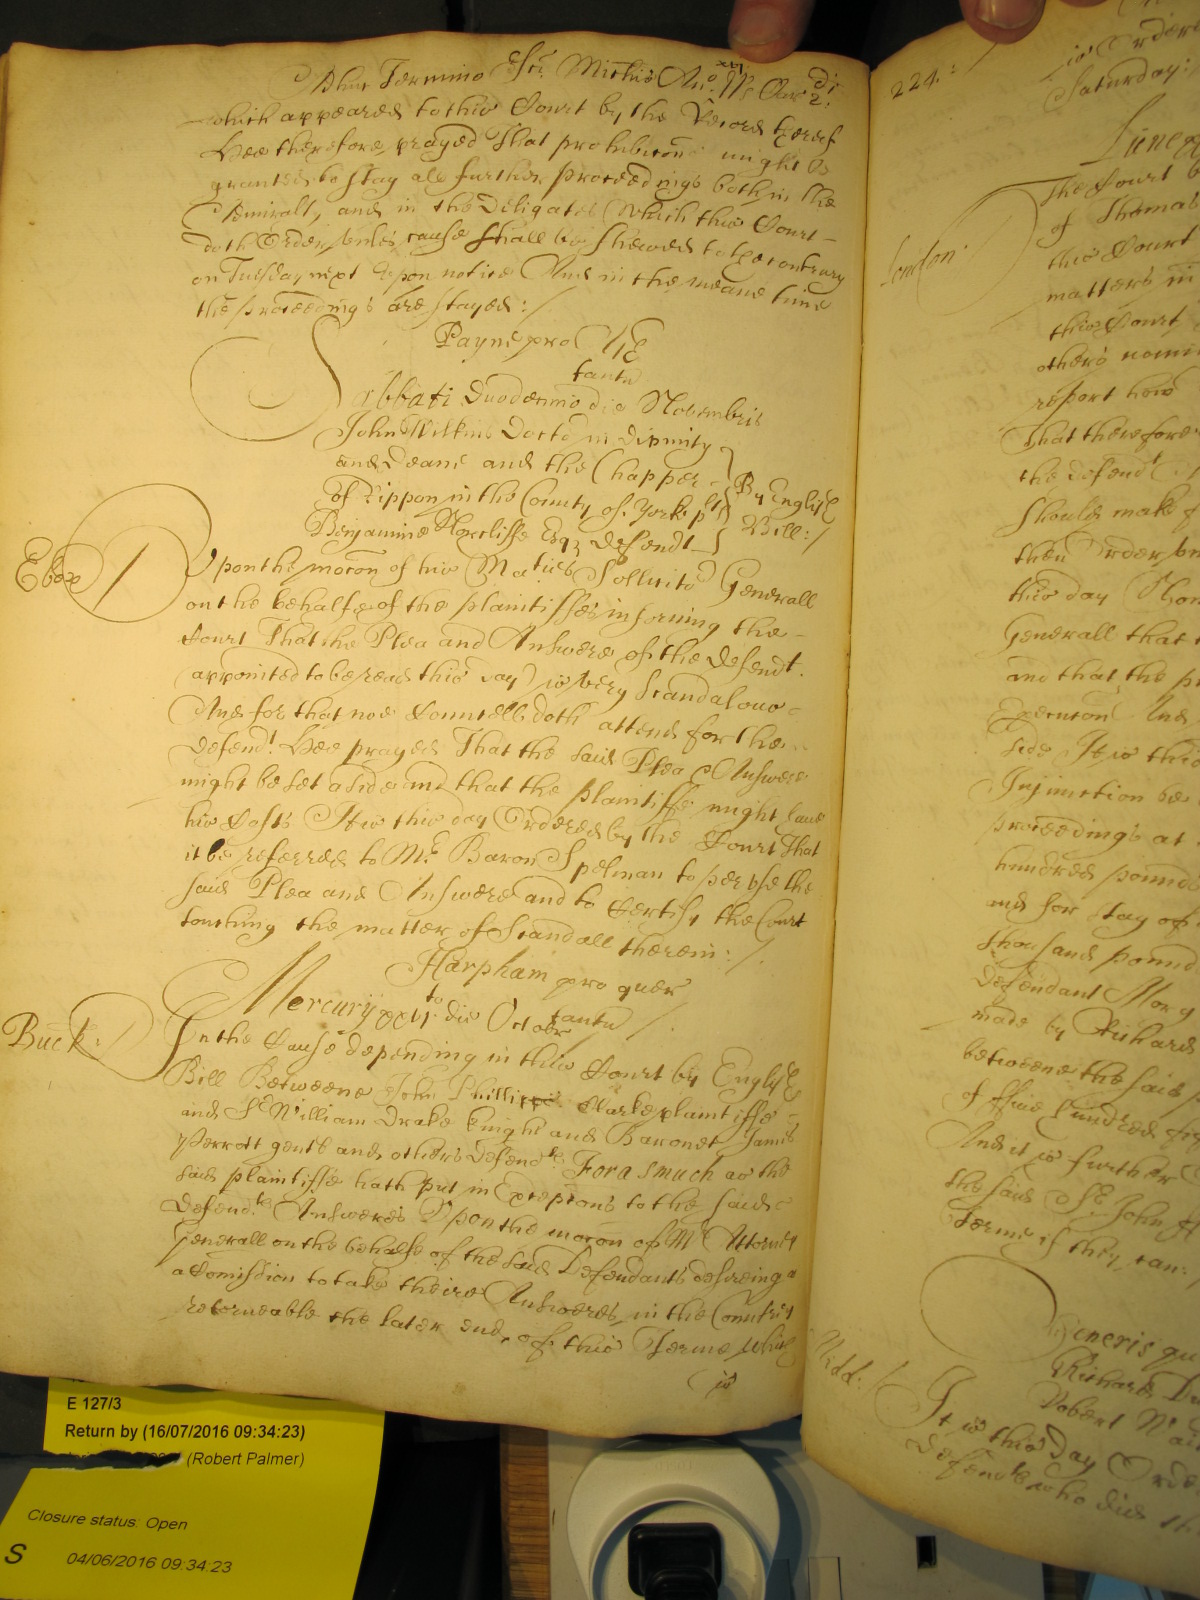 Term Mich An° xvj Car 2di
which appeared to this Court by the Record thereof
Hee therefore prayed That prohibicons might be
granted to stay all further proceedings both in the
Admiralty and in the Deligates (Which this Court
doth Order, unles cause shall be shewed to the contrary
on Tuesday next Upon notice And in the meane time
the proceedings are stayed:/
Payne pro
tantu
Sabbati Duodecimo die Novembris
John Wilkins Doctor in Divinity
and Deane and the Chapter
of Rippon in the County of Yorke plts
By English
Benjamine Norcliffe Esqr Defendt
Bill:/
Ebor
Upon the mocon of his Maties Sollicitor Generall
on the behalfe of the plaintiffes informing the
Court That the Plea and Answere of the Defendt.
appointed to be read this day is very Scandalous
And for that noe Councell doth attend for the
Defendt. Hee prayed That the said Plea & Answere
might be set aside and that the plaintiffe might have
his Costs It is this day Ordered by the Court That
it be referred to Mr. Baron Spelman to peruse the
said Plea and Answere and to Certify the Court
touching the matter of Scandall therein:/.
Harpham pro quer
tantu
Mercurij xxvjto die Octobr
Buck:/
In the Cause depending in this Court by English
Bill Betweene John Phillipps Clarke plaintiffe
and Sr William Drake Knight and Baronet James
Perrott gent and others Defendts. For asmuch as the
said plaintiffe hath put in Excepcons to the said
Defendts. Answeres Upon the mocon of Mr Attorney
Generall on the behalfe of the said Defendants desireing a
Comission to take theire Answeres, in the Countrey
retorneable the later end, of this Terme, which
is
224.
is Ordered
Saturday:
Lune
London
The Court
of Thomas
this Court
matters in
this Court
others
report how
That therefore
the Defendt
should make
then Order
this day
Generall that
and that the
Execucon And
side It is this
Injunction be
proceedings at
hundred pounds
and for stay of
thousand pound
Defendant Mory
made by Richard
betweene the said
of ffive hundred
And it is further
the said Sr. John
Terme if they can:
Midd:/
Veneris
Richard
Robert
It is this day Order
Defendts who did
E 127/3
Return by (16/07/2016 09:34:23)
(Robert Palmer)
Closure status: Open
S
04/06/2016 09:34:23